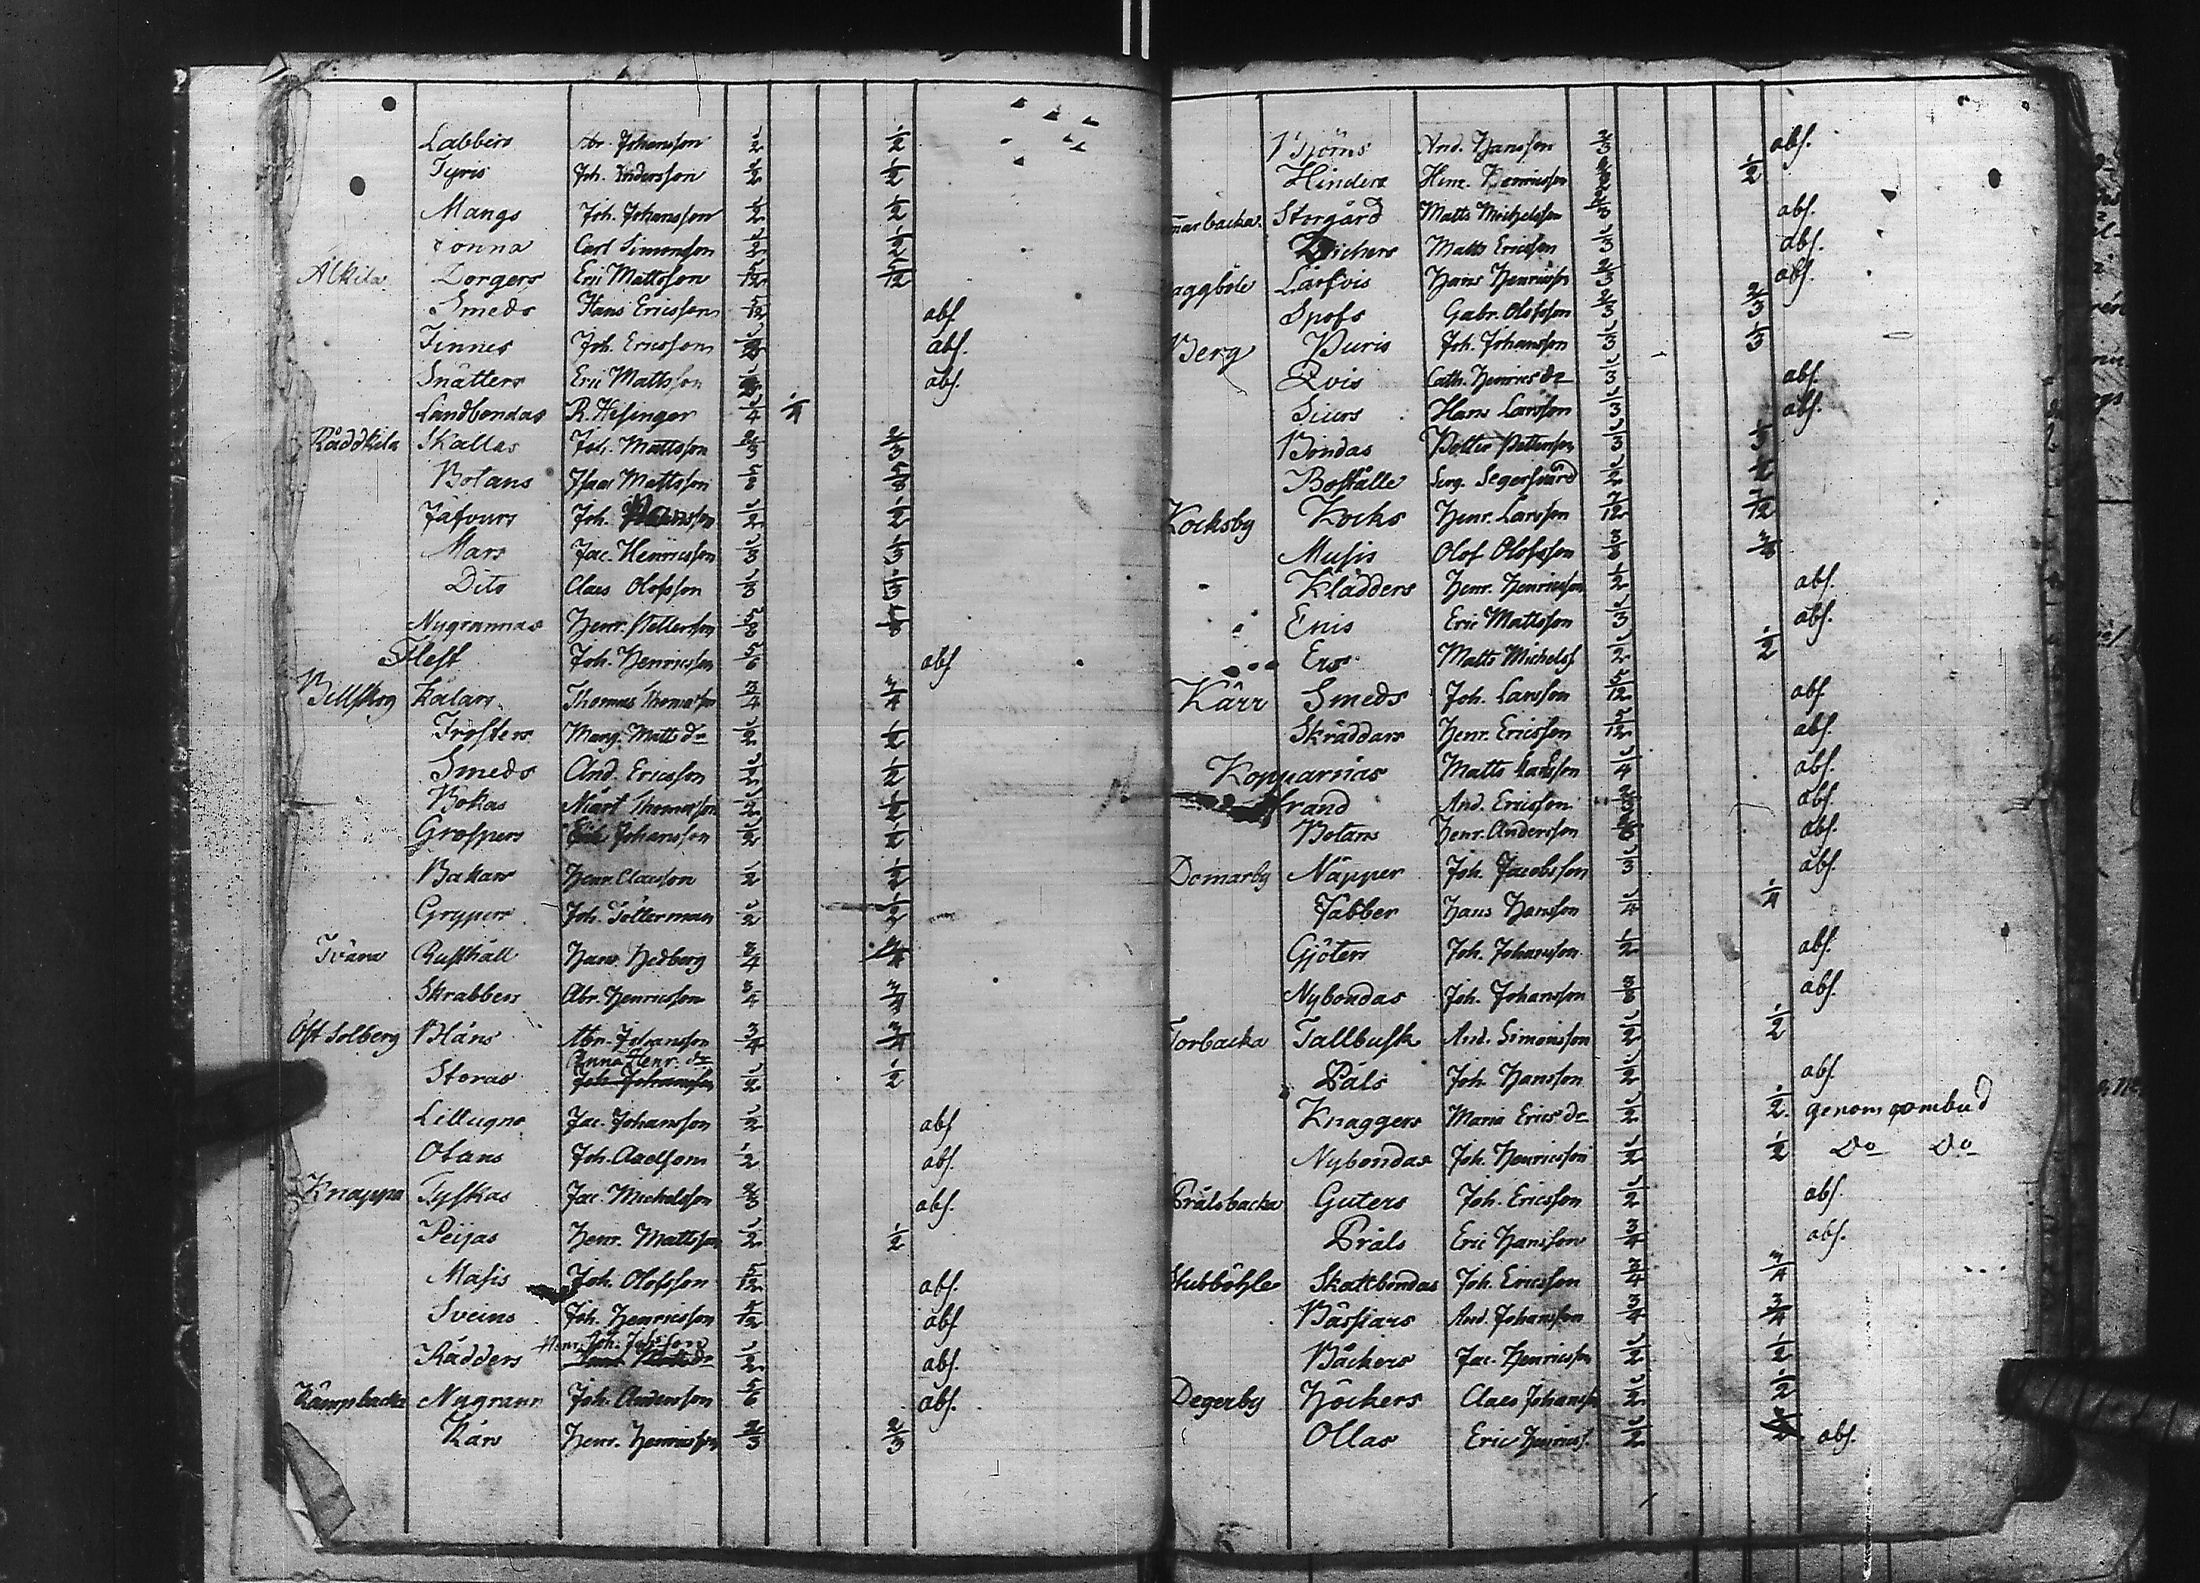 Labbers Abr. Johansson 1/2 1/2
Tyris Joh. Andersson 1/2 1/2
Mangs Joh. Johansson 1/2 1/2
Jonna Carl Simonsson 1/2 1/2
Alkila Dorgers Eric Mattsson 7/12 7/12
Smeds Hans Ericsson 5/12 abs.
Finnes Joh. Ericsson abs.
Snätters Eric Mattsson abs.
Landbondas R. Hisinger 1/4 1/4
Räddkila Skallas Joh. Mattsson 2/3 2/3
Botans Isaac Mattsson
Jäfvurs Joh. 1/2 1/2
Mars Jac. Henricsson 1/3 1/3
Dito Claes Olofsson 1/3 1/3
Nygrannas Henr. Pettersson
Flest Joh. Henricsson 5/6 abs
Billskog Kalars Thomas Thomasson 3/4 3/4
Frosters Marg. Matts dr 1/2 1/2
Smeds And. Ericsson 1/2 1/2
Bokas Mårt Thomasson 1/2 1/2
Grospers Johansson 1/2 1/2
Bakars Henr. Claesson 1/2 1/2
Grypers Joh. Tötterman 1/2 1/2
Tvära Rusthåll Hans Hedberg 3/4
Skrabbers Abr. Henricsson 3/4 3/4
Öst Solberg Bläns Abr. Johansson 3/4 3/4
Anna Henr. dr
Storas Joh. Johansson 1/2 1/2
Lillugns Jac. Johansson 1/2 abs
Ofans Joh. Axelsson 1/2 abs.
Knappa Tyskas Jac. Michelsson 2/3 abs.
Peijas Henr. Mattsson 1/2 1/2
Masis Joh. Olofsson 5/12 abs.
Sveins Joh. Henricsson 5/12 abs
Henr. Joh. Johsson
Rädders 1/2 abs.
Kämpbacka Nygrann Joh. Andersson 5/6 abs.
Kärs Henr. Henricsson 2/3 2/3
Björns And. Hansson 2/3 abs.
Hinders Henr. Henricsson 1/2
marbacka Storgård Matts Michelsson abs.
Matts Ericsson abs.
aggböle Lärfvis Hans Henricsson abs.
Spofs Gabr. Olofsson 2/3 2/3
Berg Buris Joh. Johansson 1/3 1/3
Qvis Cath. Henrics dr 1/3 abs.
Siurs Hans Larsson 1/3 abs.
Bondas Petter Pettersson 1/3 1/3
Boställe Serg. Segersvärd 1/2 1/2
Kocksby Kocks Henr. Larsson 7/12 7/12
Musis Olof Olofsson
Klädders Henr. Henricsson 1/2 abs.
Enis Eric Mattsson 1/3 abs.
Ers Matts Michelss 1/2 1/2
Kärr Smeds Joh. Larsson 5/12 abs
Skräddars Henr. Ericsson abs.
Kopparnäs Matts Larsson 1/4 abs.
strand And. Ericsson abs.
Botans Henr. Andersson abs.
Domarby Näpper Joh. Jacobsson 1/3 abs.
Jabber Hans Hansson 1/4 1/4
Gjöters Joh. Johansson 1/2 abs.
Nybondas Joh. Johansson abs.
Torbacka Tallbusk And. Simonsson 1/2 1/2
Påls Joh. Hansson 1/2 abs.
Knaggers Maria Erics dr 1/2 1/2 genom ombud
Nybondas Joh. Henricsson 1/2 1/2 Do Do
Prålsbacka Guters Joh. Ericsson 1/2 abs.
Pråls Eric Hansson 3/4 abs.
Stubböhle Skattbondas Joh. Ericsson 3/4 3/4
Bässars And. Johansson 3/4 3/4
Bäckers Jac. Henricsson 1/2 1/2
Degerby Höckers Claes Johanss 1/2 1/2
Ollas Eric Henrics. 1/2 abs.